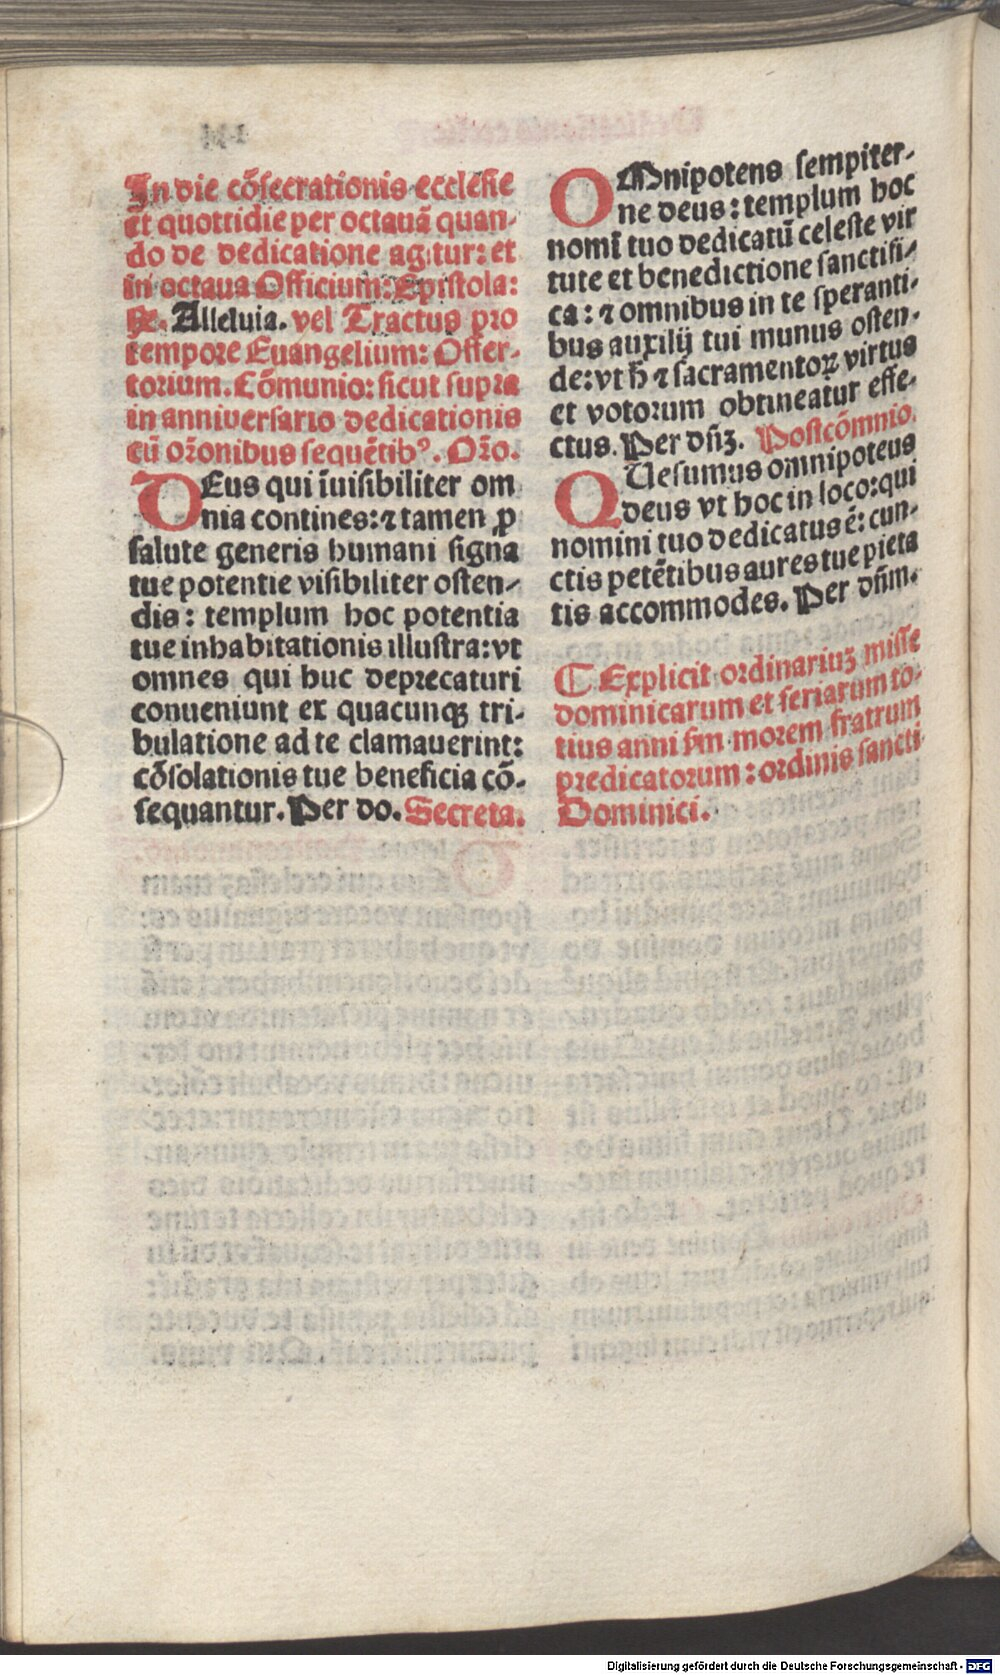 In die cōsecrationis ecclesie
et quottidie per octauā quan-
do de dedicatione agitur: et
in octaua Officium: Epistola:
℟. Alleluia. vel Tractus pro
tempore Euangelium: Offer-
torium. Cōmunio: sicut supra
in anniuersario dedicationis
cū oꝛ̄onibus sequētibꝰ. Oꝛ̄o.
DEus qui īuisibiliter om
nia contines: ⁊ tamen ꝓ
salute generis humani signa
tue potentie visibiliter osten-
dis: templum hoc potentia
tue inhabitationis illustra: vt
omnes qui huc deprecaturi
conueniunt ex quacunqꝫ tri-
bulatione ad te clamauerint:
cōsolationis tue beneficia cō-
sequantur. Per do. Secreta.
OMnipotens sempiter-
ne deus: templum hoc
nomī tuo dedicatū celeste vir
tute et benedictione sanctifi-
ca: ⁊ omnibus in te speranti-
bus auxilij tui munus osten-
de: vt ħ ⁊ sacramentoꝝ virtus
et votorum obtineatur effe-
ctus. Per dn̄ꝫ. Postcōmnio.
QUesumus omnipoteus
deus vt hoc in loco: qui
nomini tuo dedicatus ē: cun-
ctis petētibus aures tue pieta
tis accommodes. Per dn̄m.
¶ Explicit ordinariuꝫ misse
dominicarum et feriarum to-
tius anni s̄m morem fratrum
predicatorum: ordinis sancti
Dominici.
Digitalisierung gefördert durch die Deutsche Forschungsgemeinschaft - DFG